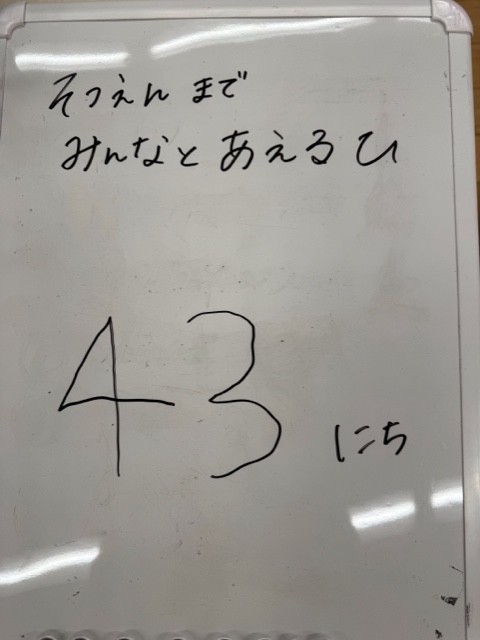 そつえんまで
みんなとあえるひ
43 にち